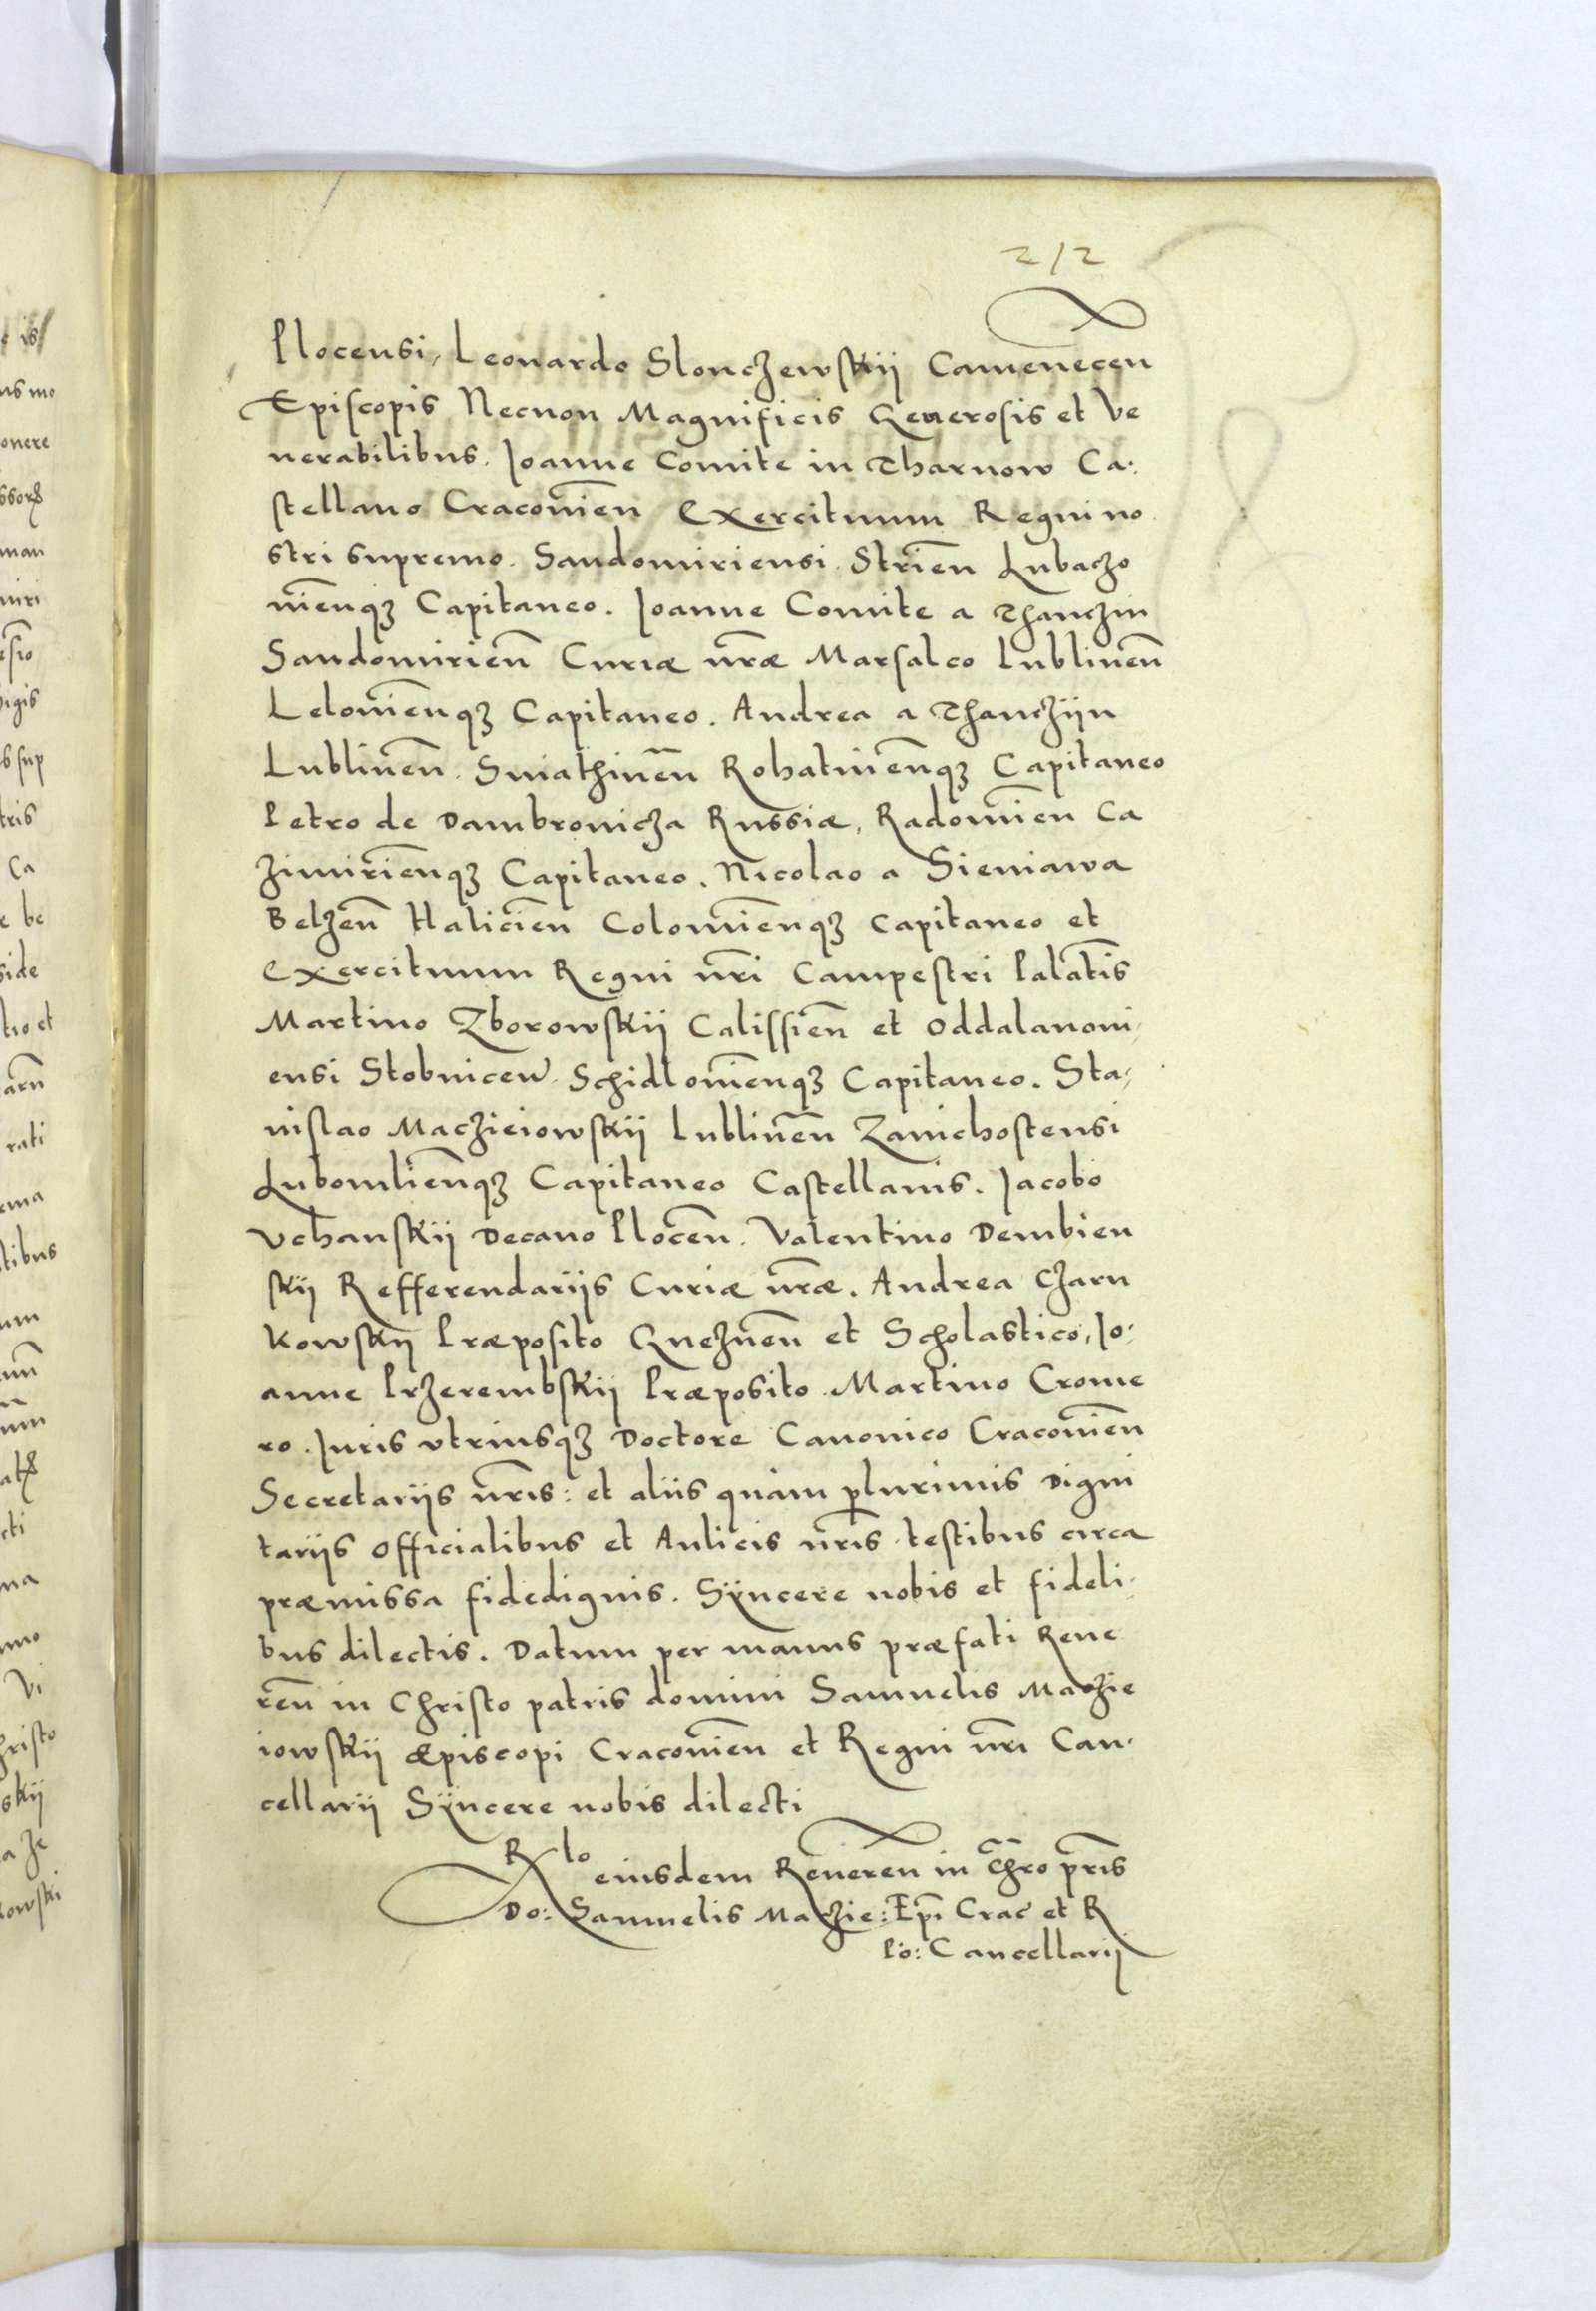 212
Plocensi, Leonardo Slonczewskij Camenecen
Episcopis Necnon Magnificis Generosis et Ve
nerabilibus. Joanne Comite in Tharnow Ca:
stellano Cracovien̄ Exercituum Regni no
stri supremo. Sandomiriensi. Strien̄ Lubaczo
vien̄qꝫ Capitaneo. Joanne Comite a Thanczin
Sandomirien̄ Curiæ nr̄æ Marsalco Lublinen̄
Lelovien̄qꝫ Capitaneo. Andrea a Thanczijn
Lublinen̄. Sniathinen̄ Rohatinen̄qꝫ Capitaneo
Petro de Dambrovicza Russiæ, Radomien̄ Ca
zimirien̄qꝫ Capitaneo. Nicolao a Sieniawa
Belzen̄ Halicien̄ Colomien̄qꝫ Capitaneo et
Exercituum Regni nr̄i Campestri Palat̄is
Martino Zborowskij Calissien̄ et Oddalanovi,
ensi Stobnicen̄. Schidlovien̄qꝫ Capitaneo. Sta,
nislao Maczieiowskij Lublinen̄ Zawichostensi
Lubomlien̄qꝫ Capitaneo Castellanis. Jacobo
Vchanskij Decano Plocen̄. Valentino Dembien
skij Refferendariis Curiæ nr̄æ. Andrea Czarn
kowskij Præposito Gneznen̄ et Scholastico, Jo:
anne Przerembskij Præposito. Martino Crome
ro. Juris vtriusqꝫ Doctore Canonico Cracovien̄
Secretariis nr̄is: et aliis quam ꝑlurimis Digni
tariis Officialibus et Aulicis nr̄is testibus circa
præmissa fidedignis. Sÿncere nobis et fideli,
bus dilectis. Datum per manus præfati Reue
ren̄ in Christo patris domini Samuelis Maczie
iowskij Æpiscopi Cracovien̄ et Regni nr̄i Can,
cellarii Sÿncere nobis dilecti
Rlo eiusdem Reueren̄ in Chr̄o pr̄is
Do: Samuelis Maczie: Ep̄i Crac̄ et R
Po: Cancellarij